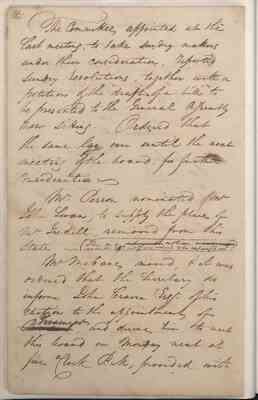 The Committee, appointed at the
last meeting, to take sundry matters
under their consideration, reported
sundry resolutions, together with a
petition & the draft of a bill to
be presented to the General Assembly
now sitting. Ordered that
the same lye over until the next
meeting of the board, for further
Consideration
Mr. Person nominated Govr
John Swan, to supply the place of
Mr. Iredell, removed from this
State
Mr. McBane, moved, & it was
ordered that the Secretary do
inform John Craven Esqr. of his
election to the appointment of
and desire him to meet
this board on Monday next at
five o'Clock P.M., provided with